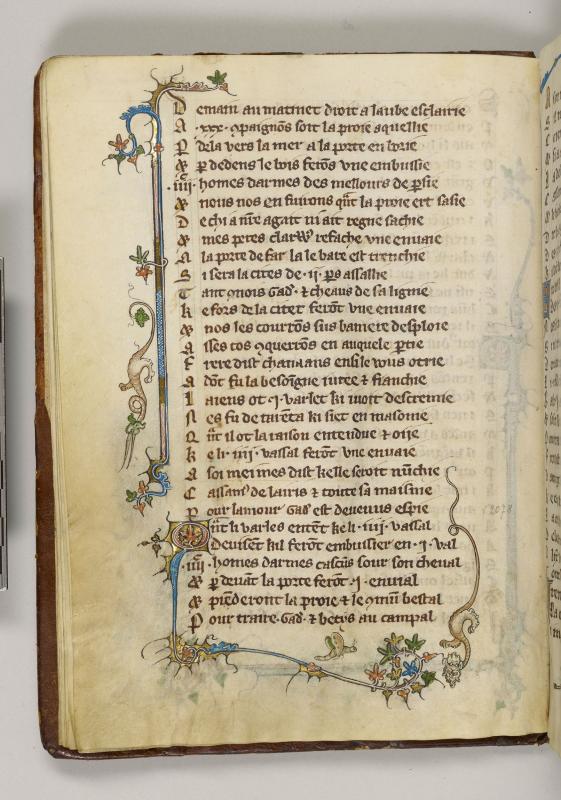 D emain au matinet droit a laube esclairie
A .xxx. ꝯpaignōs soit la proie aqueillie
P dela vers la mer a la porte en
& ꝑ dedens le bois ferōs vne embuissie
.iiij. homes darmes des mellours de ꝑsie
& nous nos en fuirons q̄nt la proie ert saisie
D echi a nr̄e agait ni ait regne sachie
& mes peres clarꝰ refache vne enuaie
A la porte de far la le bare est trenchie
S i sera la cites de .ij. ꝑs assallie
T ant ꝯnois Gad̄. & cheaus de sa lignie
K e fors de la citet ferōt vne enuaie
& nos les courrōs sus baniere desploie
A sses tos ꝯquerrōs en auquele ꝑtie
F rere dist chasans ensi le vous otrie
A dōt fu la besoigne iuree & fianchie
L aiens ot .i. varlet ki
N es fu de tarēta ki siet en
Q n̄t il ot la raison entendue & oije
K e li .iiij. vassal ferōt vne enuaie
A soi meimes dist kelle seroit nūchie
C assamꝰ de lairis & toute sa maisnie
P our lamour Gad̄. est deuenus espie
Q n̄t li varles entēt ke li .iiij. vassal
Deuisēt kil ferōt embuissier en .i. val
.iiij. homes darmes cascūs sour son cheual
& ꝑ deuāt la porte ferōt .i. enuial
& prēderont la proie & le ꝯmū bestal
P our traire Gad̄. & betys au campal